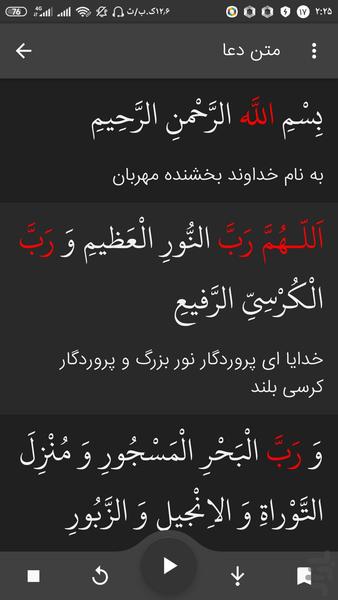 76 4G ۱۲٫۶ک.ب/ث ۱۷ ۲:۲۵
متن دعا
بِسْمِ اللَّه الرَّحْمنِ الرَّحِيمِ
به نام خداوند بخشنده مهربان
اَللّـهُمَّ رَبَّ النُّورِ الْعَظيمِ وَ رَبَّ
الْكُرْسِيِّ الرَّفيعِ
خدایا ای پروردگار نور بزرگ و پروردگار
کرسی بلند
وَ رَبَّ الْبَحْرِ الْمَسْجُورِ وَ مُنْزِلَ
التَّوْراةِ وَ الاِنْجيلِ وَ الزَّبُورِ